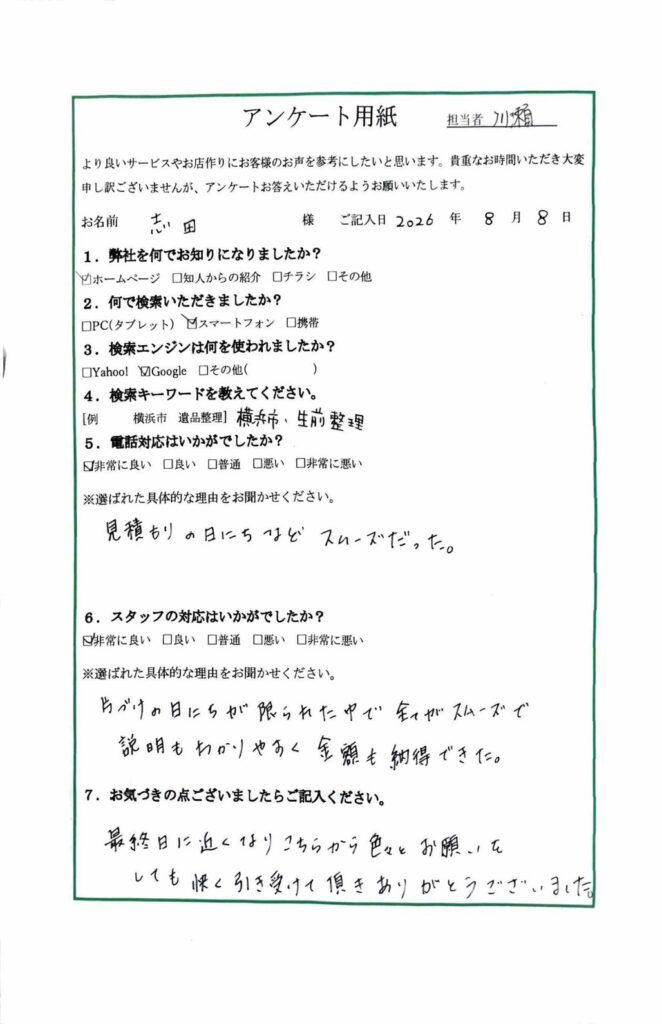 アンケート用紙 担当者 川瀬
より良いサービスやお店作りにお客様のお声を参考にしたいと思います。貴重なお時間いただき大変
申し訳ございませんが、アンケートお答えいただけるようお願いいたします。
お名前 志田 様 ご記入日 2026 年 8 月 8 日
1．弊社を何でお知りになりましたか？
☑ホームページ □知人からの紹介 □チラシ □その他
2．何で検索いただきましたか？
□PC(タブレット) ☑スマートフォン □携帯
3．検索エンジンは何を使われましたか？
□Yahoo! ☑Google □その他( )
4．検索キーワードを教えてください。
[例 横浜市 遺品整理] 横浜市、生前整理
5．電話対応はいかがでしたか？
☑非常に良い □良い □普通 □悪い □非常に悪い
※選ばれた具体的な理由をお聞かせください。
見積もりの日にちなど スムーズだった。
6．スタッフの対応はいかがでしたか？
☑非常に良い □良い □普通 □悪い □非常に悪い
※選ばれた具体的な理由をお聞かせください。
片づけの日にちが限られた中で全てがスムーズで
説明もわかりやすく金額も納得できた。
7．お気づきの点ございましたらご記入ください。
最終日に近くなりこちらから色々とお願いを
しても快く引き受けて頂きありがとうございました。